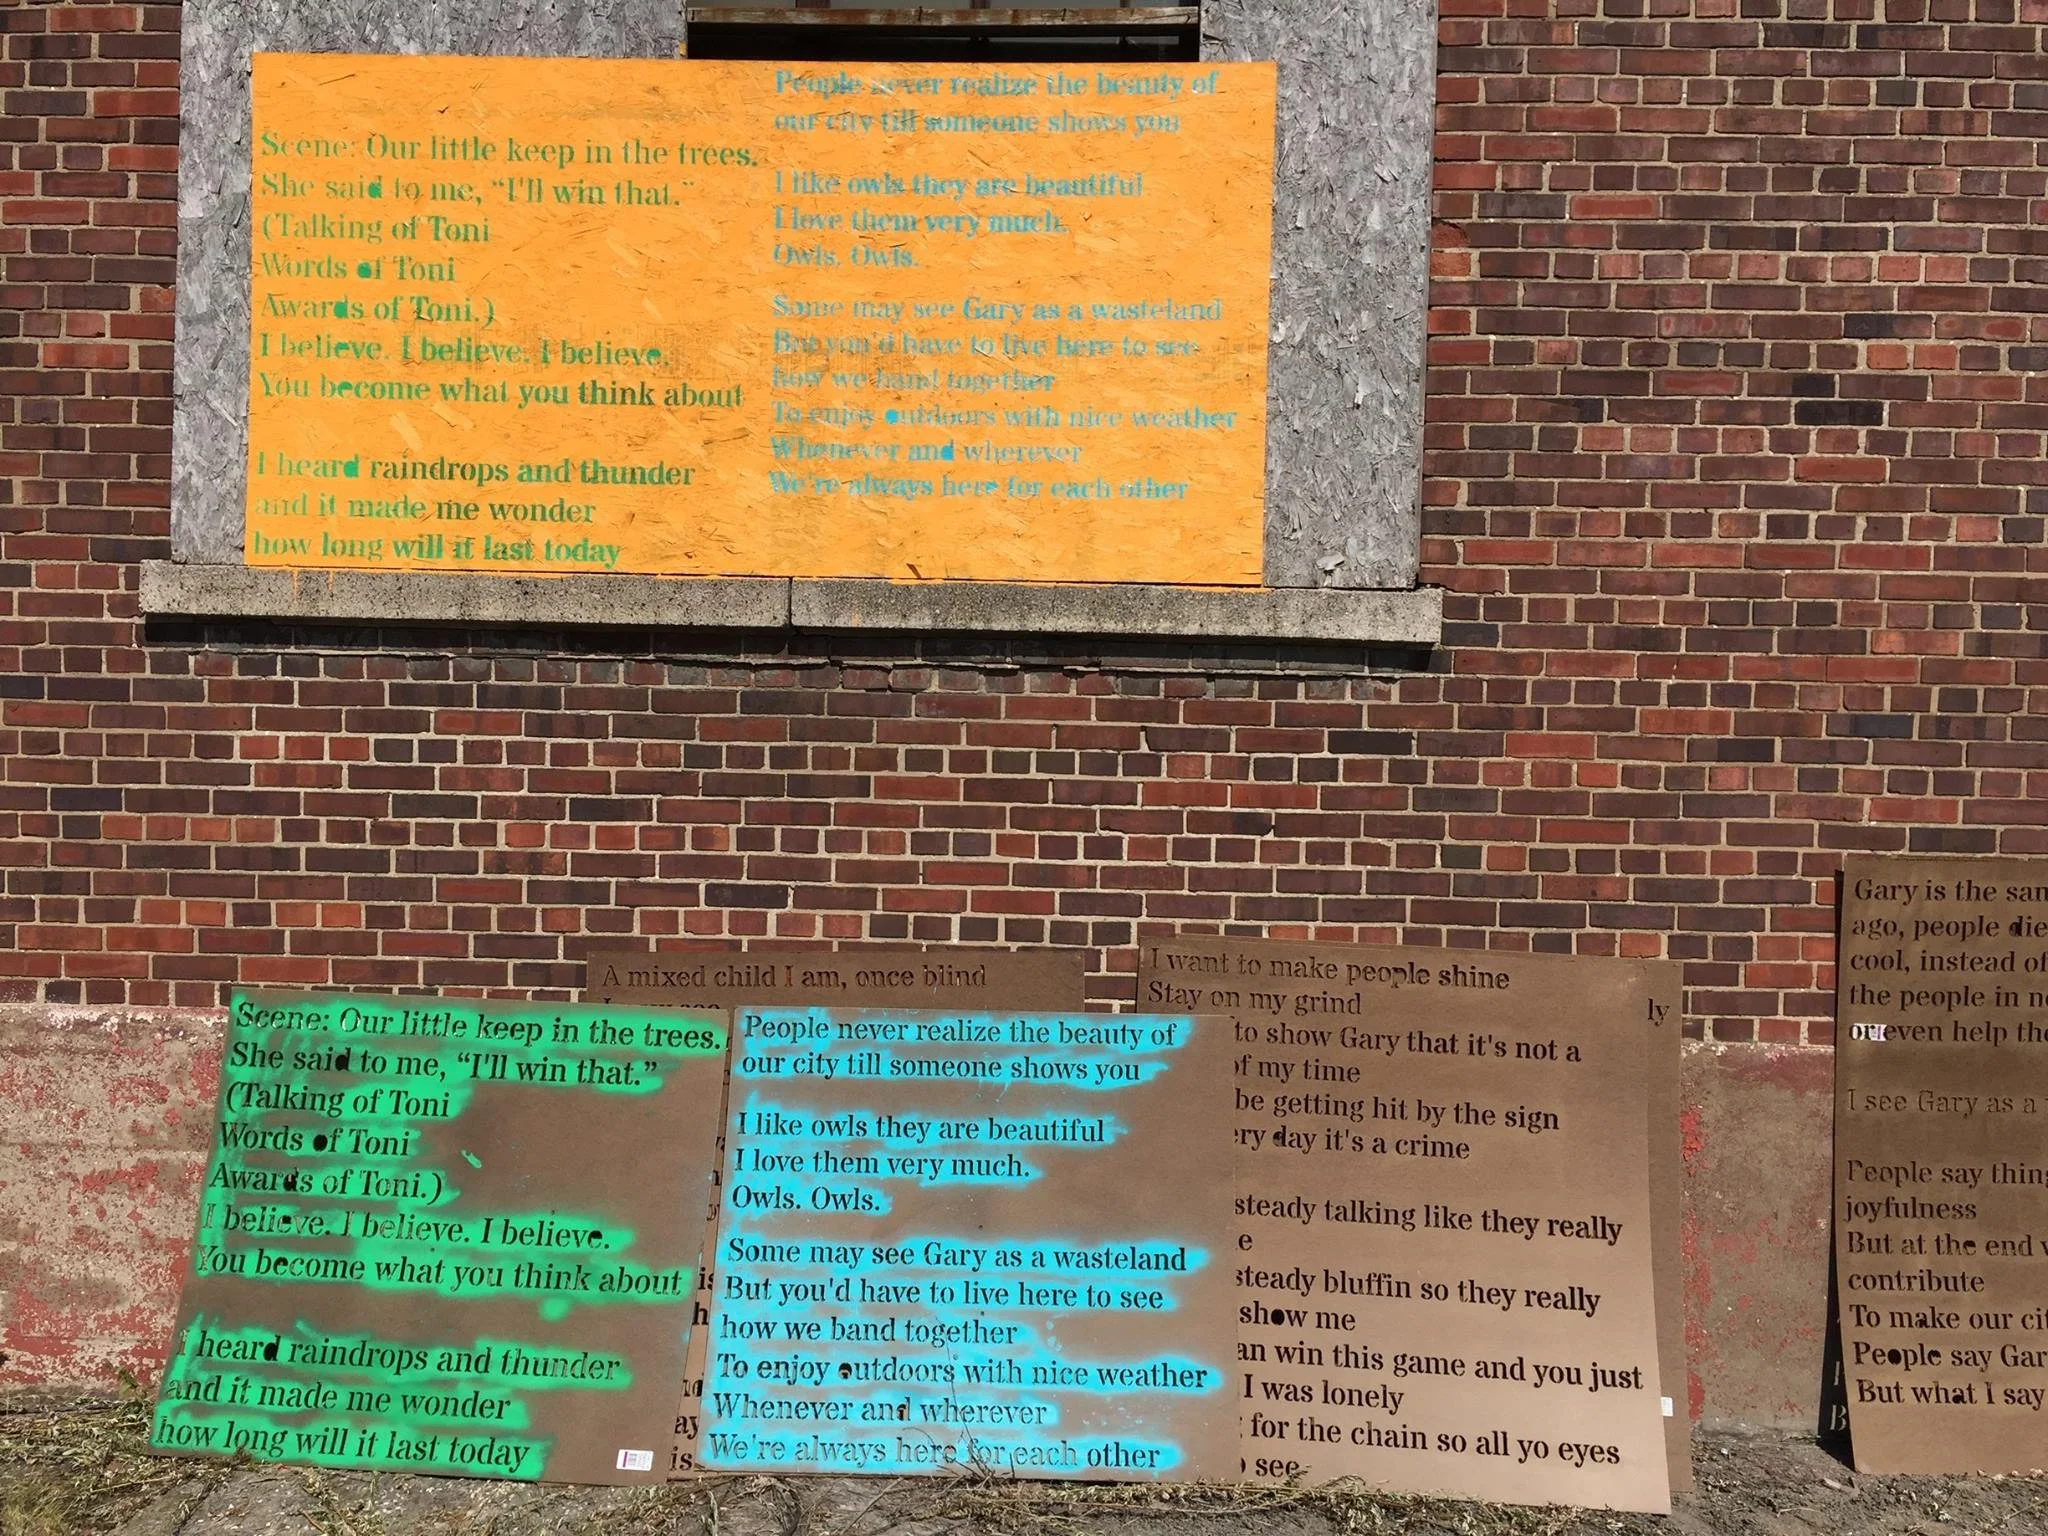 Scene: Our little keep in the trees.
She said to me, “I'll win that.”
(Talking of Toni
Words of Toni
Awards of Toni.)
I believe. I believe. I believe.
You become what you think about
I heard raindrops and thunder
and it made me wonder
how long will it last today
People never realize the beauty of
our city till someone shows you
I like owls they are beautiful
I love them very much.
Owls. Owls.
Some may see Gary as a wasteland
But you'd have to live here to see
how we band together
To enjoy outdoors with nice weather
Whenever and wherever
We're always here for each other
Scene: Our little keep in the trees.
She said to me, “I'll win that.”
(Talking of Toni
Words of Toni
Awards of Toni.)
I believe. I believe. I believe.
You become what you think about
I heard raindrops and thunder
and it made me wonder
how long will it last today
A mixed child I am, once blind
People never realize the beauty of
our city till someone shows you
I like owls they are beautiful
I love them very much.
Owls. Owls.
Some may see Gary as a wasteland
But you'd have to live here to see
how we band together
To enjoy outdoors with nice weather
Whenever and wherever
We're always here for each other
I want to make people shine
Stay on my grind
to show Gary that it's not a
of my time
be getting hit by the sign
ery day it's a crime
steady talking like they really
e
steady bluffin so they really
show me
an win this game and you just
I was lonely
for the chain so all yo eyes
see
ly
Gary is the
ago, people
cool, instead of
the people in
or even help
I see Gary as a
People say
joyfulness
But at the end
contribute
To make our
People say
But what I say